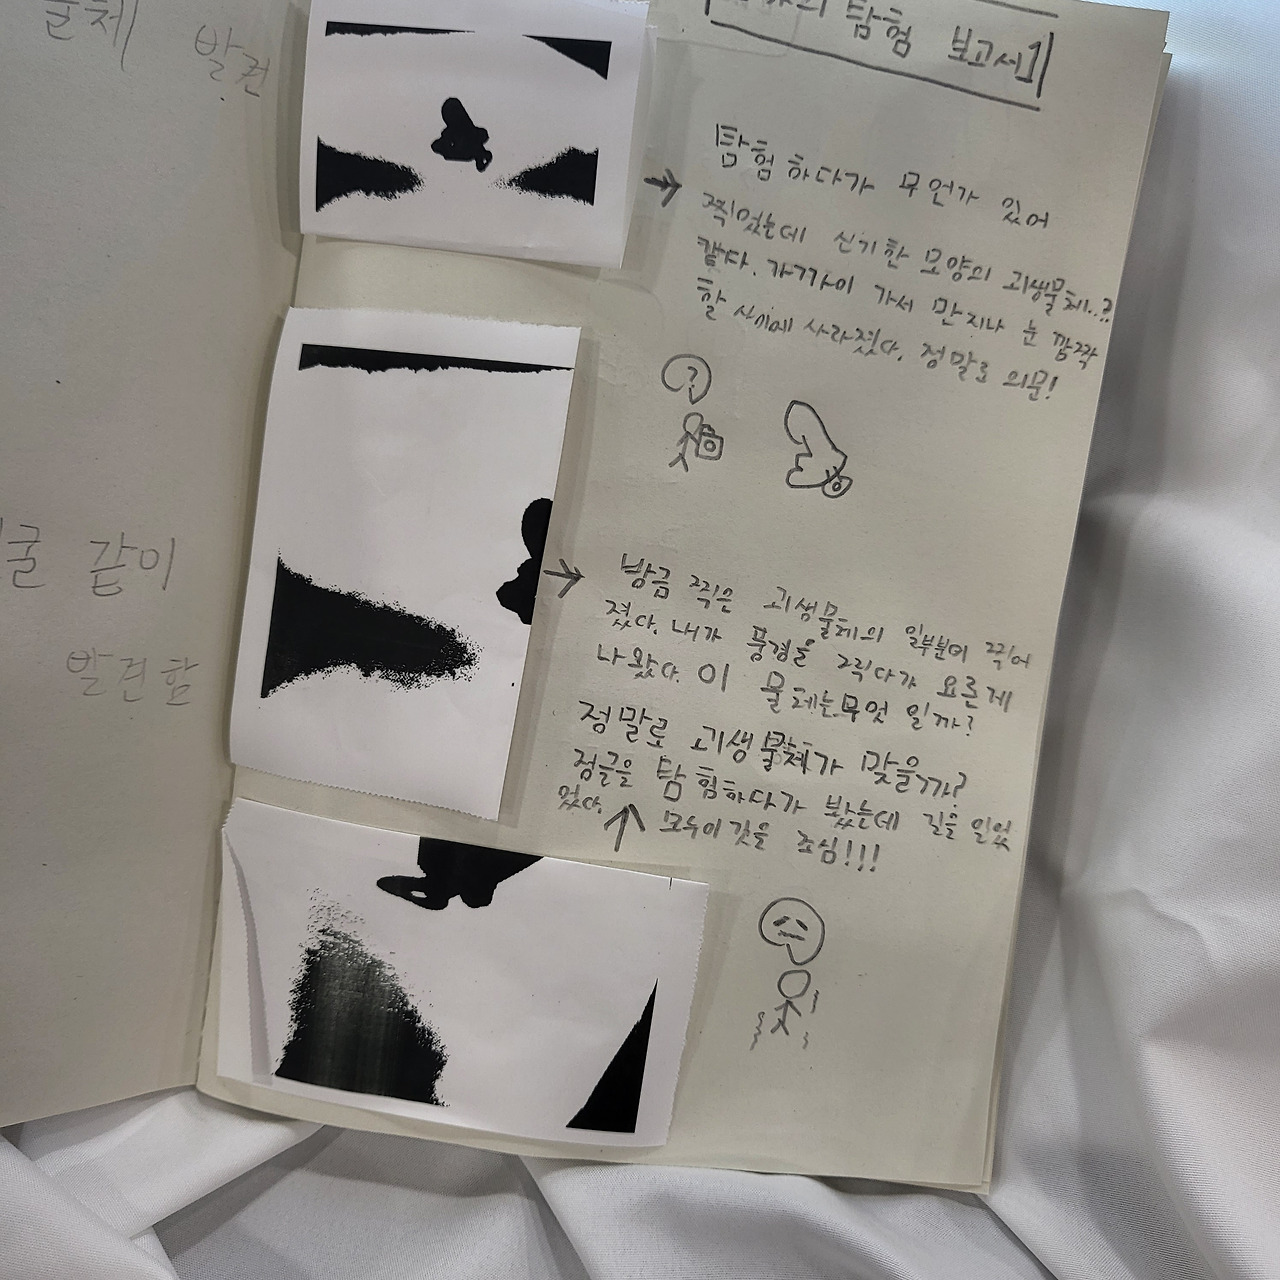 물체
발견
굴 같이
발견함
의 탐험 보고서1
탐험 하다가 무언가 있어
찍었는데 신기한 모양의 괴생물체..?
같다. 가까이 가서 만지나 눈 깜짝
할 사이에 사라졌다. 정말로 의문!
?
방금 찍은 괴생물체의 일부분이 찍어
졌다. 내가 풍경을 찍다가 요른게
나왔다. 이 물체는 무엇 일까?
정말로 괴생물체가 맞을까?
정글을 탐험하다가 봤는데 길을 잃었
었다.
모두 이것을 조심!!!